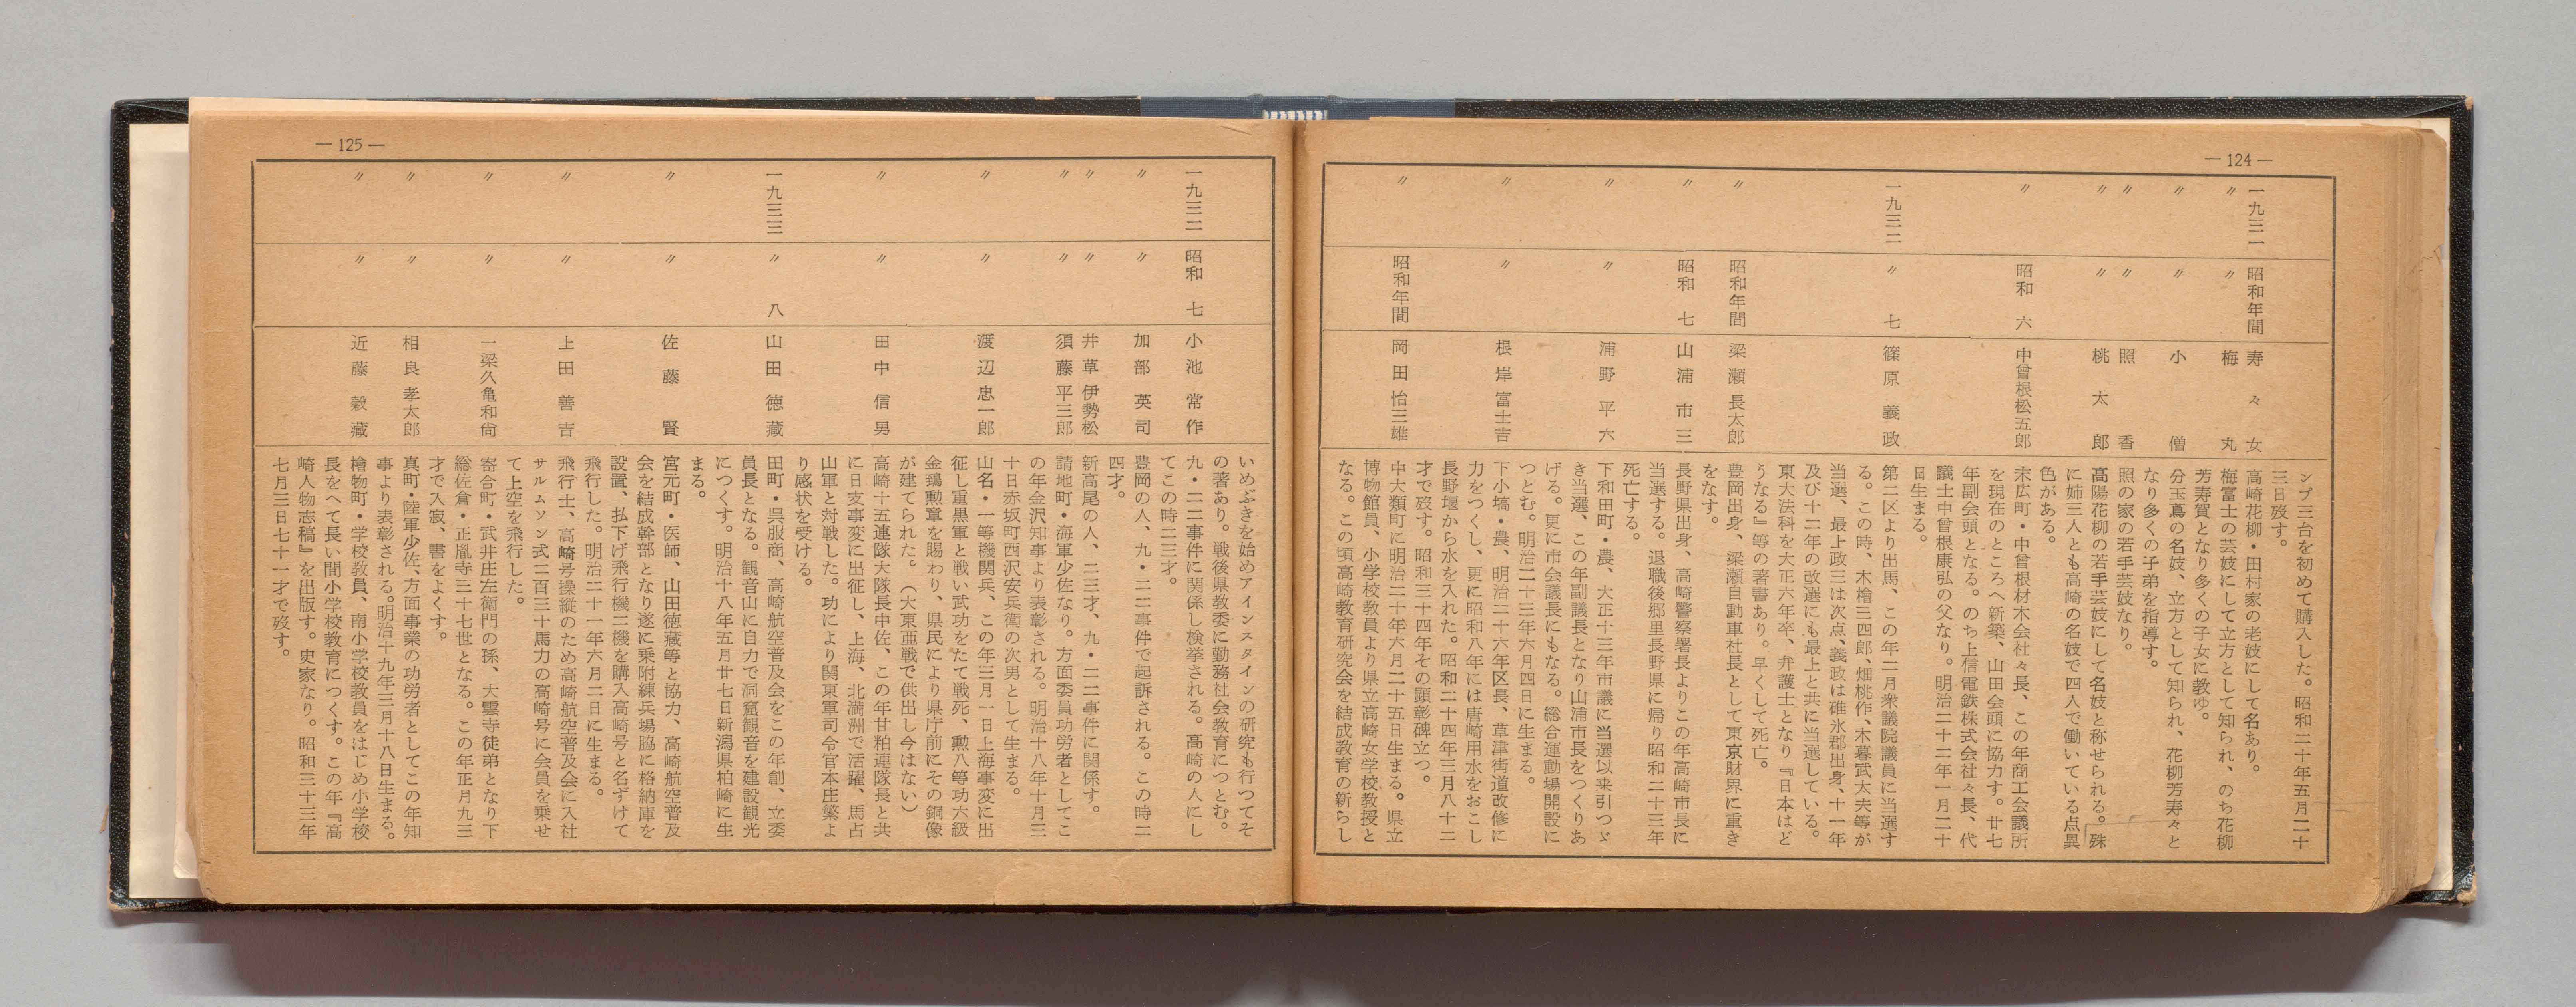 — 124 —
ンプ三台を初めて購入した。昭和二十年五月二十
三日歿す。
一九三一 昭和年間 寿々女 高崎花柳・田村家の老妓にして名あり。
〃 〃 梅丸 梅富士の芸妓にして立方として知られ、のち花柳
芳寿賀となり多くの子女に教ゆ。
〃 〃 小僧 分玉蔦の名妓、立方として知られ、花柳芳寿々と
なり多くの子弟を指導す。
〃 〃 照香 照の家の若手芸妓なり。
〃 〃 桃太郎 高陽花柳の若手芸妓にして名妓と称せられる。殊
に姉三人とも高崎の名妓で四人で働いている点異
色がある。
〃 昭和 六 中曾根松五郎 末広町・中曾根材木会社々長、この年商工会議所
を現在のところへ新築、山田会頭に協力す。廿七
年副会頭となる。のち上信電鉄株式会社々長、代
議士中曾根康弘の父なり。明治二十二年一月二十
日生まる。
一九三二 〃 七 篠原義政 第二区より出馬、この年二月衆議院議員に当選す
る。この時、木檜三四郎、畑桃作、木暮武太夫等が
当選、最上政三は次点、義政は碓氷郡出身、十一年
及び十二年の改選にも最上と共に当選している。
東大法科を大正六年卒、弁護士となり『日本はど
うなる』等の著書あり。早くして死亡。
〃 昭和年間 梁瀬長太郎 豊岡出身、梁瀬自動車社長として東京財界に重き
をなす。
〃 昭和 七 山浦市三 長野県出身、高崎警察署長よりこの年高崎市長に
当選する。退職後郷里長野県に帰り昭和二十三年
死亡する。
〃 〃 浦野平六 下和田町・農、大正十三年市議に当選以来引つゞ
き当選、この年副議長となり山浦市長をつくりあ
げる。更に市会議長にもなる。総合運動場開設に
つとむ。明治二十三年六月四日に生まる。
〃 〃 根岸富士吉 下小塙・農、明治二十六年区長、草津街道改修に
力をつくし、更に昭和八年には唐崎用水をおこし
長野堰から水を入れた。昭和二十四年三月八十二
才で歿す。昭和三十四年その顕彰碑立つ。
〃 昭和年間 岡田怡三雄 中大類町に明治二十年六月二十五日生まる。県立
博物館員、小学校教員より県立高崎女学校教授と
なる。この頃高崎教育研究会を結成教育の新らし
— 125 —
いめぶきを始めアインスタインの研究も行つてそ
の著あり。戦後県教委に勤務社会教育につとむ。
一九三二 昭和 七 小池常作 九・二二事件に関係し検挙される。高崎の人にし
てこの時二三才。
〃 〃 加部英司 豊岡の人、九・二二事件で起訴される。この時二
四才。
〃 〃 井草伊勢松 新高尾の人、二三才、九・二二事件に関係す。
〃 〃 須藤平三郎 請地町・海軍少佐なり。方面委員功労者としてこ
の年金沢知事より表彰される。明治十八年十月三
十日赤坂町西沢安兵衛の次男として生まる。
〃 〃 渡辺忠一郎 山名・一等機関兵、この年三月一日上海事変に出
征し重黒軍と戦い武功をたて戦死、勲八等功六級
金鵄勲章を賜わり、県民により県庁前にその銅像
が建てられた。（大東亜戦で供出し今はない）
〃 〃 田中信男 高崎十五連隊大隊長中佐、この年甘粕連隊長と共
に日支事変に出征し、上海、北満洲で活躍、馬占
山軍と対戦した。功により関東軍司令官本庄繁よ
り感状を受ける。
一九三三 八 山田徳蔵 田町・呉服商、高崎航空普及会をこの年創、立委
員長となる。観音山に自力で洞窟観音を建設観光
につくす。明治十八年五月廿七日新潟県柏崎に生
まる。
〃 〃 佐藤賢 宮元町・医師、山田徳蔵等と協力、高崎航空普及
会を結成幹部となり遂に乗附練兵場脇に格納庫を
設置、払下げ飛行機二機を購入高崎号と名ずけて
飛行した。明治二十一年六月二日に生まる。
〃 〃 上田善吉 飛行士、高崎号操縦のため高崎航空普及会に入社
サルムソン式二百三十馬力の高崎号に会員を乗せ
て上空を飛行した。
〃 〃 一梁久亀和尚 寄合町・武井庄左衛門の孫、大雲寺徒弟となり下
総佐倉・正胤寺三十七世となる。この年正月九三
才で入寂、書をよくす。
〃 〃 相良孝太郎 真町・陸軍少佐、方面事業の功労者としてこの年知
事より表彰される。明治十九年三月十八日生まる。
〃 〃 近藤穀蔵 檜物町・学校教員、南小学校教員をはじめ小学校
長をへて長い間小学校教育につくす。この年『高
崎人物志稿』を出版す。史家なり。昭和三十三年
七月三日七十一才で歿す。